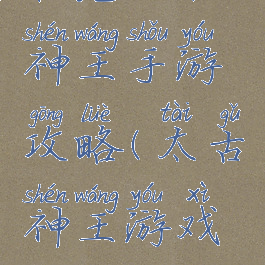 shén wáng shǒu yóu
神王手游
gōng lüè tài gǔ
攻略(太古
shén wáng yóu xì
神王游戏